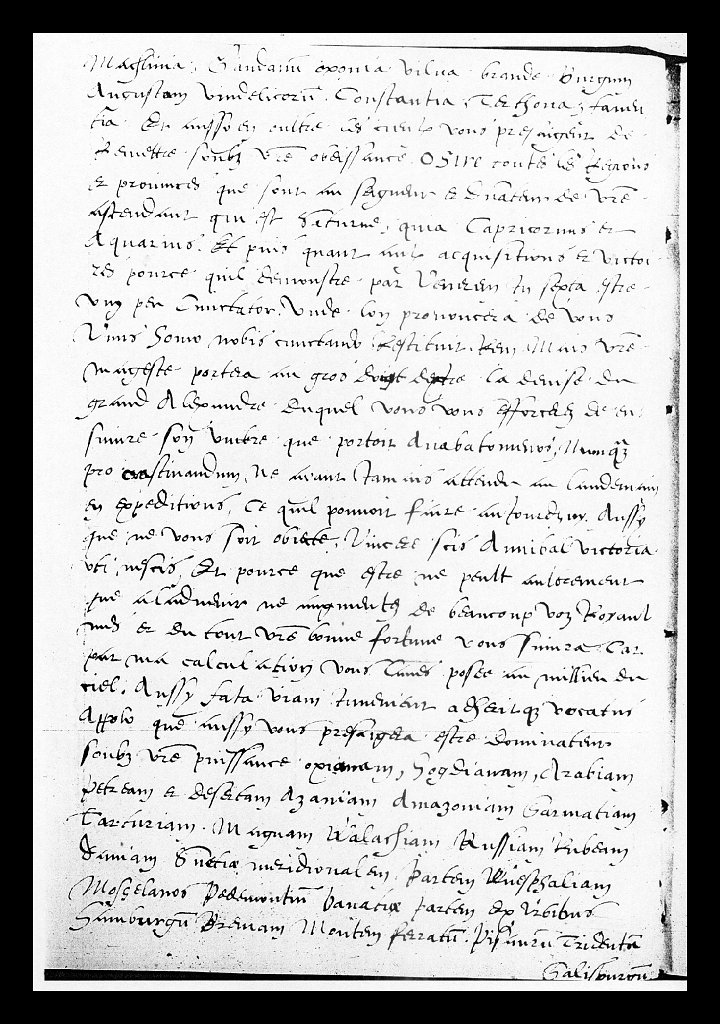 Machlinia, Gandanũ oxonia vilna brande Burgum
Augustam vindelicorũ. Constantia, Terthona, faven
tia. Et aussy en oultre les cieulx vous presaigent de
Remettre soubz vr̃e obeissance. Oste toutes les Regions
et provinces que sont au seigneur et de vr̃e
ascendant qui est Saturne, quia Capricornus et
Aquarius. Et puis quant aux acquisitions et victoi
res pource quil demonstre par Venerem in sexta estre
ung per Cunctator. Unde lon prononcera de vous
Unus homo nobis cunctando Restituit Rem. Mais vr̃e
mageste portera au gros doigt dextre la devise du
grand Alexandre duquel vous vous efforcerez de en
suivre son umbre que portoit Anabatomenos, Nunq̃
procrastinandum, Ne ayant jamais attendu au lendemain
en expeditions, Ce quil pouvoit faire aujourdhuy. Aussy
que ne vous soit obiecte, Vincere scis Annibal victoria
uti nescis, Et pource que estre ne peult aultrement
que a l'advenir ne augmentes de beaucoup voz Royaul
mes et du tout vr̃e bonne fortune vous suivra. Car
par ma calculation vous l'aves posee au millieu du
ciel. Aussy fata viam invenient aderitq̃ vocatus
Appolo que aussy vous presaigera estre dominateur
soubz vr̃e puissance oxianam, Sogdianam, Arabiam
petream et desertam Azaniam Amazoniam Sarmatiam
Tartariam. Magnam Walachiam Russiam Rubeam
Daniam Suetiæ meridionalem partem Westphaliam
Moscelanos Pedemontiũ bavariæ partem Ex Urbibus
Hamburgũ Bremam Montem ferratũ. Pisaurũ Tridentũ
Salisburgũ.